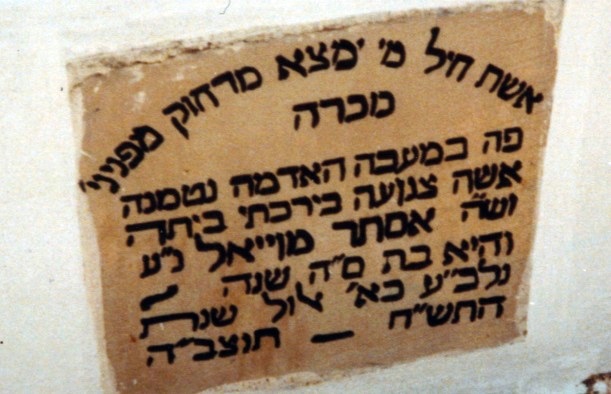 אשת חיל מ׳ ימצא מרחוק מפניני׳
מכרה
פה במעבה האדמה נטמנה
אשה צנועה בירכתי ביתה
וש״ה אסתר מוייאל נ״ע
והיא בת ס״ה שנה
נלב״ע בא׳ שנת
התש״ח — תוצב״ה